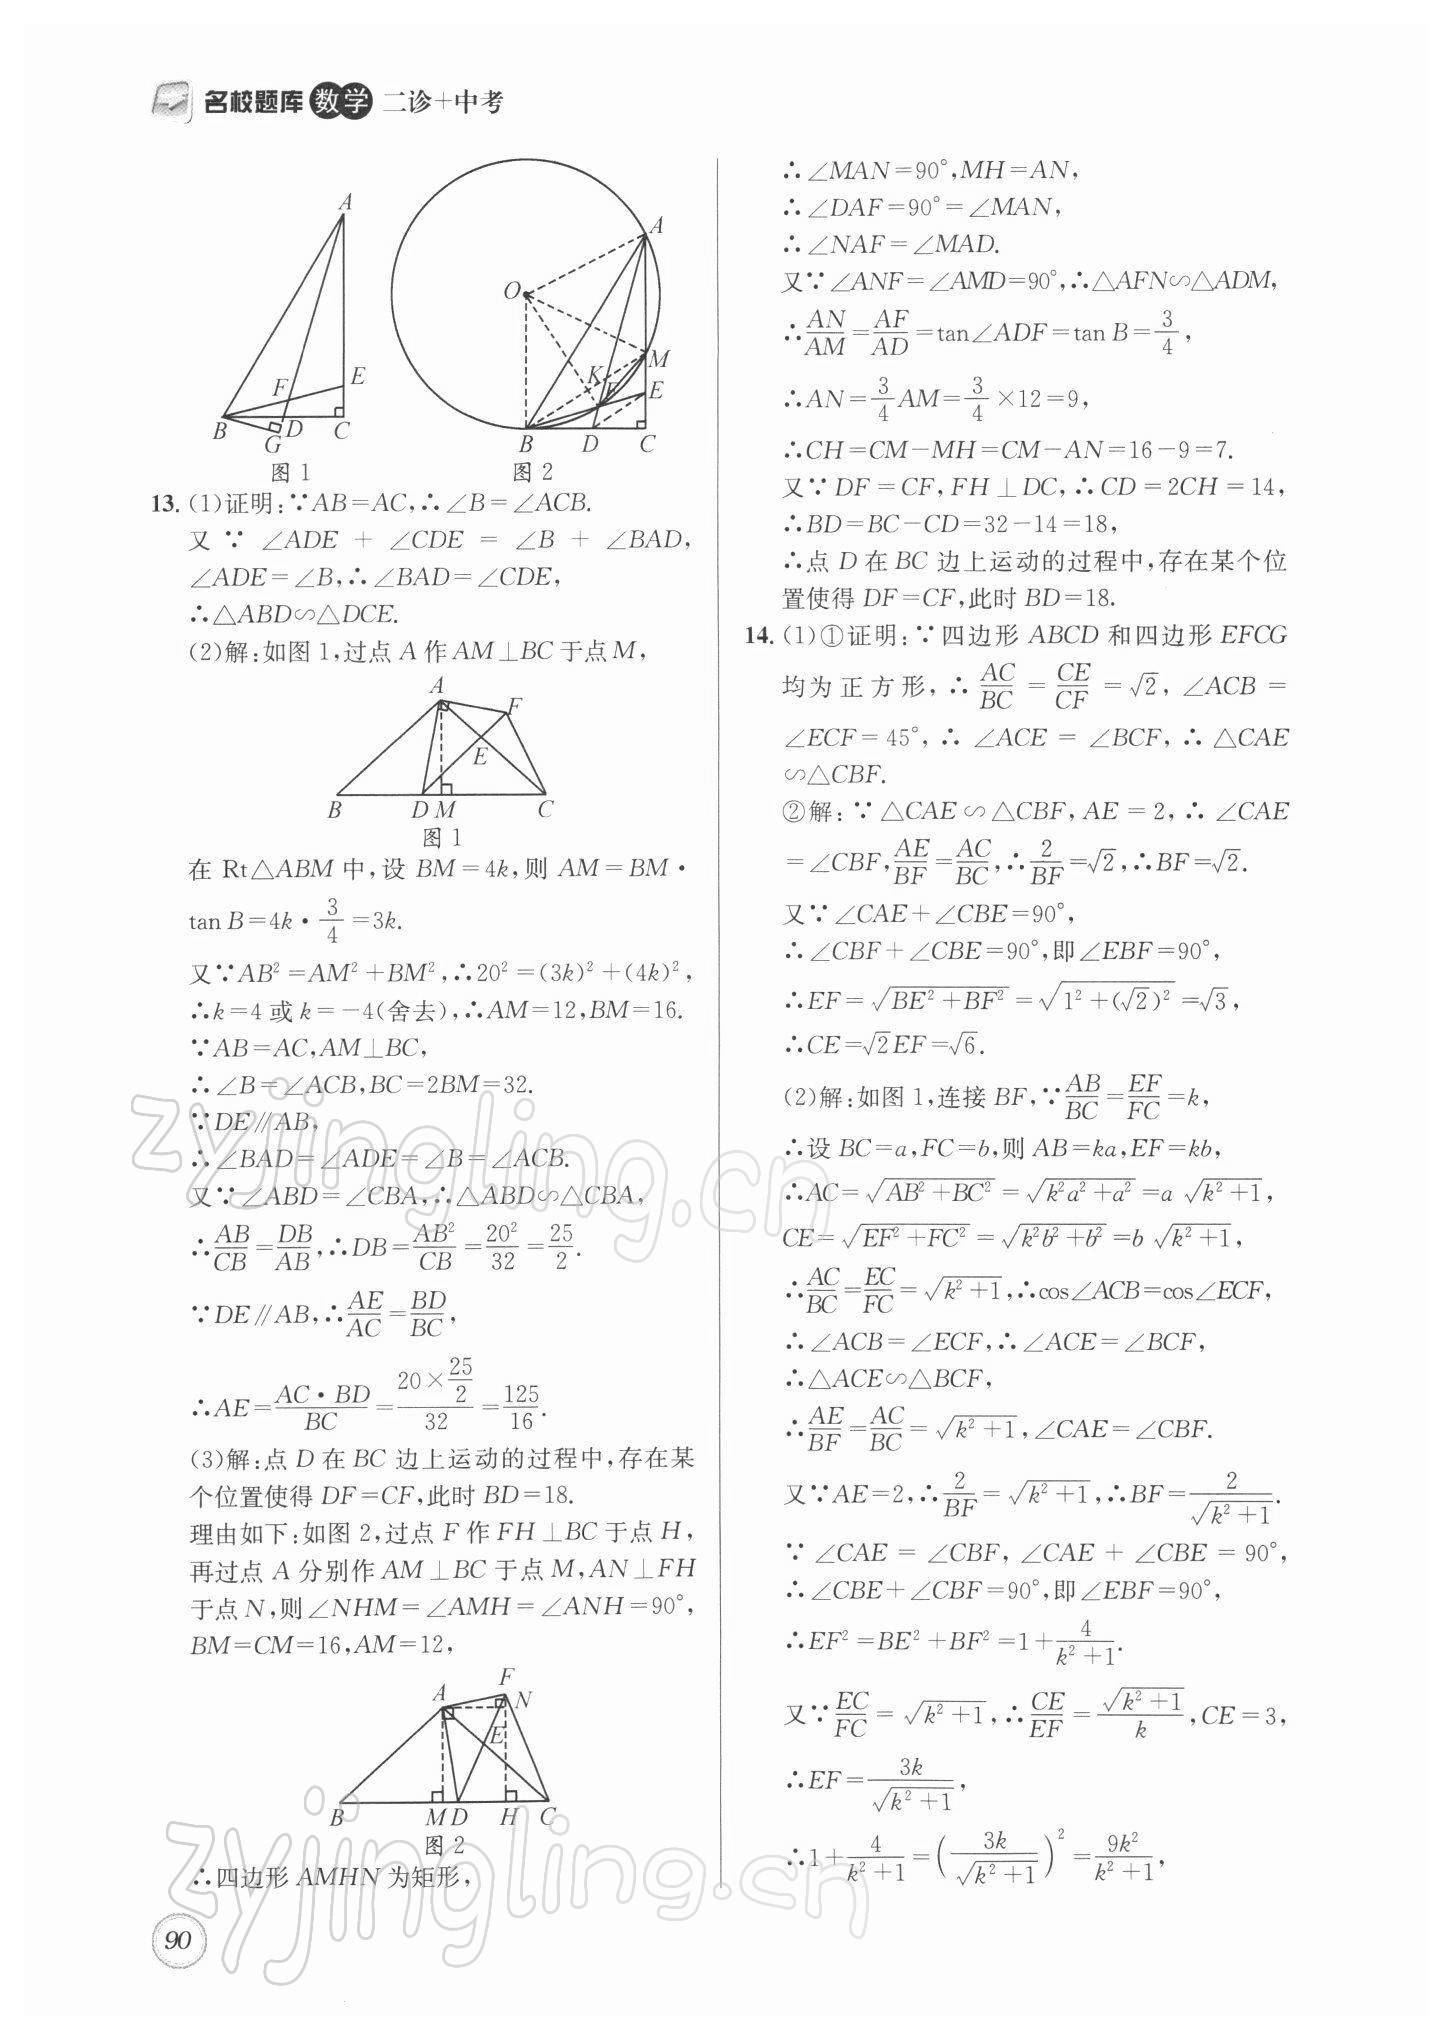 名校题库 数学 二诊+中考
A
E
F
B
D
C
G
图1
A
O
M
K
F
E
B
D
C
图2
13. (1)证明:∵AB=AC,∴∠B=∠ACB.
又∵∠ADE+∠CDE=∠B+∠BAD,
∠ADE=∠B,∴∠BAD=∠CDE,
∴△ABD∽△DCE.
(2)解:如图1,过点A作AM⊥BC于点M,
A
F
E
B
D M
C
图1
在Rt△ABM中,设BM=4k,则AM=BM·
tan B=4k·3/4=3k.
又∵AB²=AM²+BM²,∴20²=(3k)²+(4k)²,
∴k=4或k=-4(舍去),∴AM=12,BM=16.
∵AB=AC,AM⊥BC,
∴∠B=∠ACB,BC=2BM=32.
∵DE∥AB,
∴∠BAD=∠ADE=∠B=∠ACB.
又∵∠ABD=∠CBA,∴△ABD∽△CBA,
∴AB/CB=DB/AB,∴DB=AB²/CB=20²/32=25/2.
∵DE∥AB,∴AE/AC=BD/BC,
∴AE=AC·BD/BC=(20×25/2)/32=125/16.
(3)解:点D在BC边上运动的过程中,存在某
个位置使得DF=CF,此时BD=18.
理由如下:如图2,过点F作FH⊥BC于点H,
再过点A分别作AM⊥BC于点M,AN⊥FH
于点N,则∠NHM=∠AMH=∠ANH=90°,
BM=CM=16,AM=12,
F
A
N
E
B
M D
H
C
图2
∴四边形AMHN为矩形,
90
∴∠MAN=90°,MH=AN,
∴∠DAF=90°=∠MAN,
∴∠NAF=∠MAD.
又∵∠ANF=∠AMD=90°,∴△AFN∽△ADM,
∴AN/AM=AF/AD=tan∠ADF=tan B=3/4,
∴AN=3/4AM=3/4×12=9,
∴CH=CM-MH=CM-AN=16-9=7.
又∵DF=CF,FH⊥DC,∴CD=2CH=14,
∴BD=BC-CD=32-14=18,
∴点D在BC边上运动的过程中,存在某个位
置使得DF=CF,此时BD=18.
14. (1)①证明:∵四边形ABCD和四边形EFCG
均为正方形,∴AC/BC=CE/CF=√2,∠ACB=
∠ECF=45°,∴∠ACE=∠BCF,∴△CAE
∽△CBF.
②解:∵△CAE∽△CBF,AE=2,∴∠CAE
=∠CBF,AE/BF=AC/BC,∴2/BF=√2,∴BF=√2.
又∵∠CAE+∠CBE=90°,
∴∠CBF+∠CBE=90°,即∠EBF=90°,
∴EF=√(BE²+BF²)=√(1²+(√2)²)=√3,
∴CE=√2EF=√6.
(2)解:如图1,连接BF,∵AB/BC=EF/FC=k,
∴设BC=a,FC=b,则AB=ka,EF=kb,
∴AC=√(AB²+BC²)=√(k²a²+a²)=a√(k²+1),
CE=√(EF²+FC²)=√(k²b²+b²)=b√(k²+1),
∴AC/BC=EC/FC=√(k²+1),∴cos∠ACB=cos∠ECF,
∴∠ACB=∠ECF,∴∠ACE=∠BCF,
∴△ACE∽△BCF,
∴AE/BF=AC/BC=√(k²+1),∠CAE=∠CBF.
又∵AE=2,∴2/BF=√(k²+1),∴BF=2/√(k²+1).
∵∠CAE=∠CBF,∠CAE+∠CBE=90°,
∴∠CBE+∠CBF=90°,即∠EBF=90°,
∴EF²=BE²+BF²=1+4/(k²+1).
又∵EC/FC=√(k²+1),∴CE/EF=√(k²+1)/k,CE=3,
∴EF=3k/√(k²+1),
∴1+4/(k²+1)=(3k/√(k²+1))²=9k²/(k²+1),
zyjingling.cn
zyjingling.cn